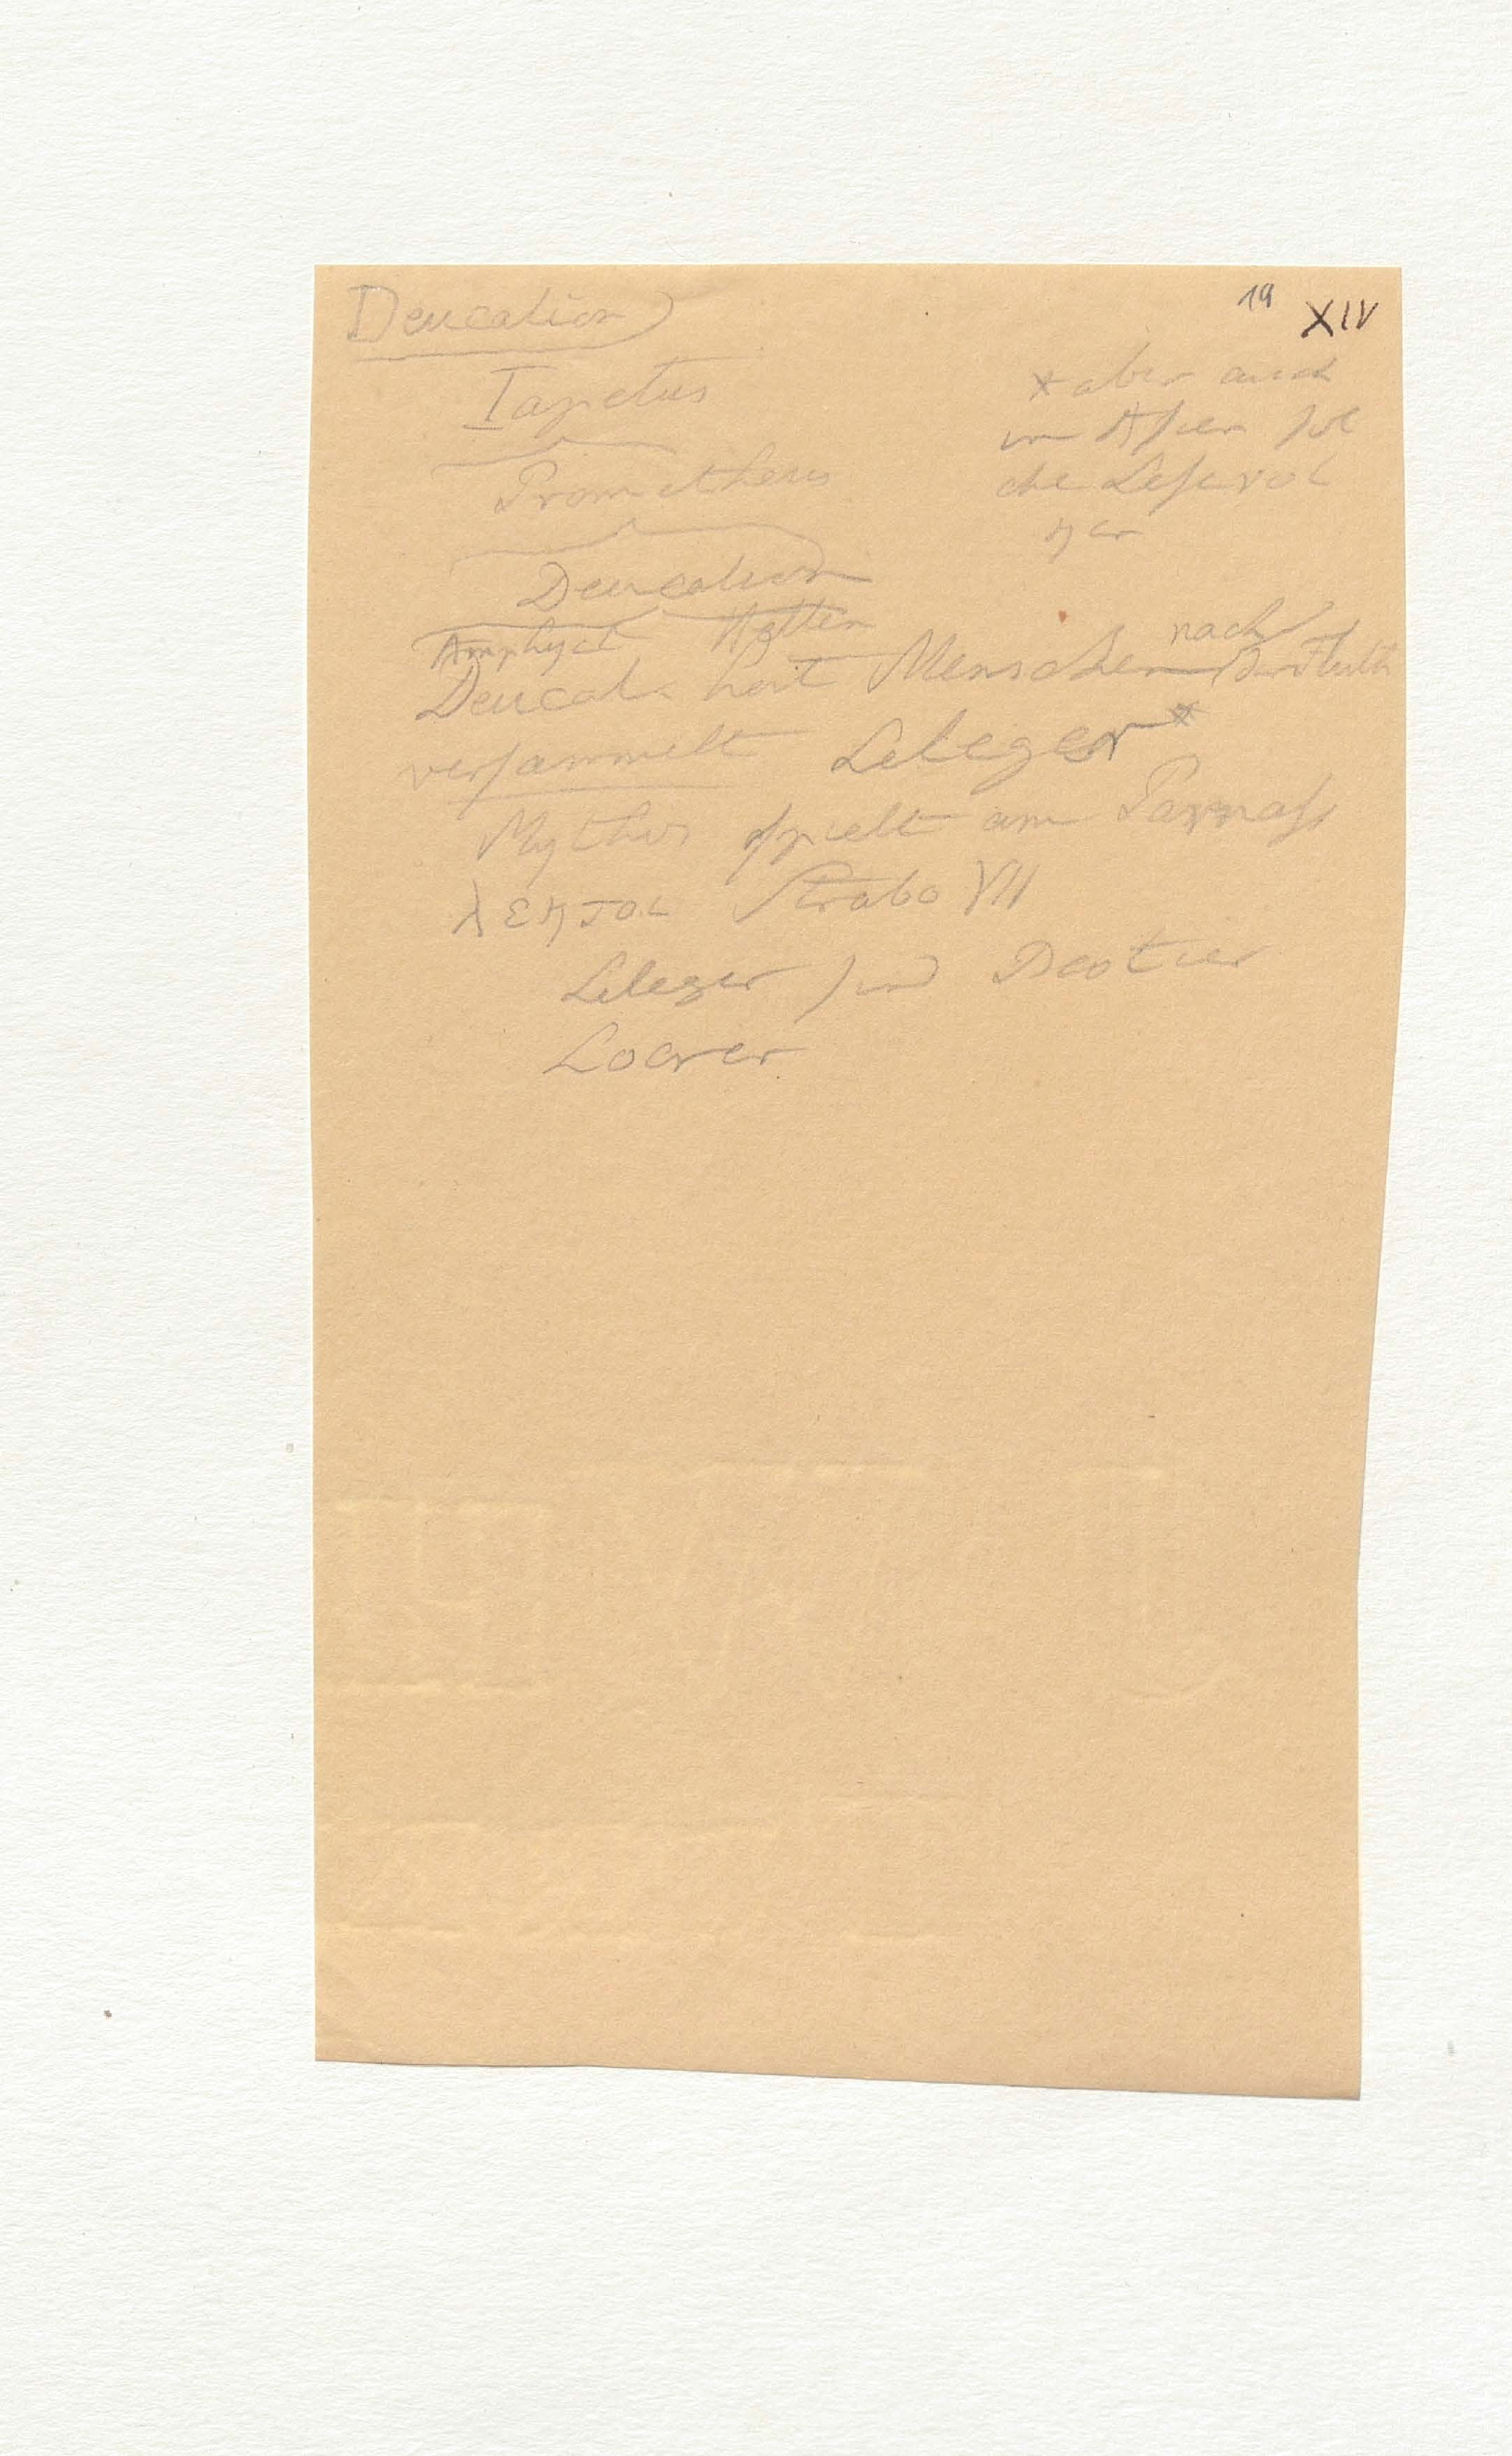 Deucalion
19 XIV
Iapetus
Prometheus
Deucalion
Amphyct Hellen
Deucal. hat Menschen nach der Fluth
versammelt Leleger*
Mythus spielt am Parnass
λεκτοι Strabo VII
Leleger sind
Locrer
*aber auch
in Asien sol
che Lesevöl
ker